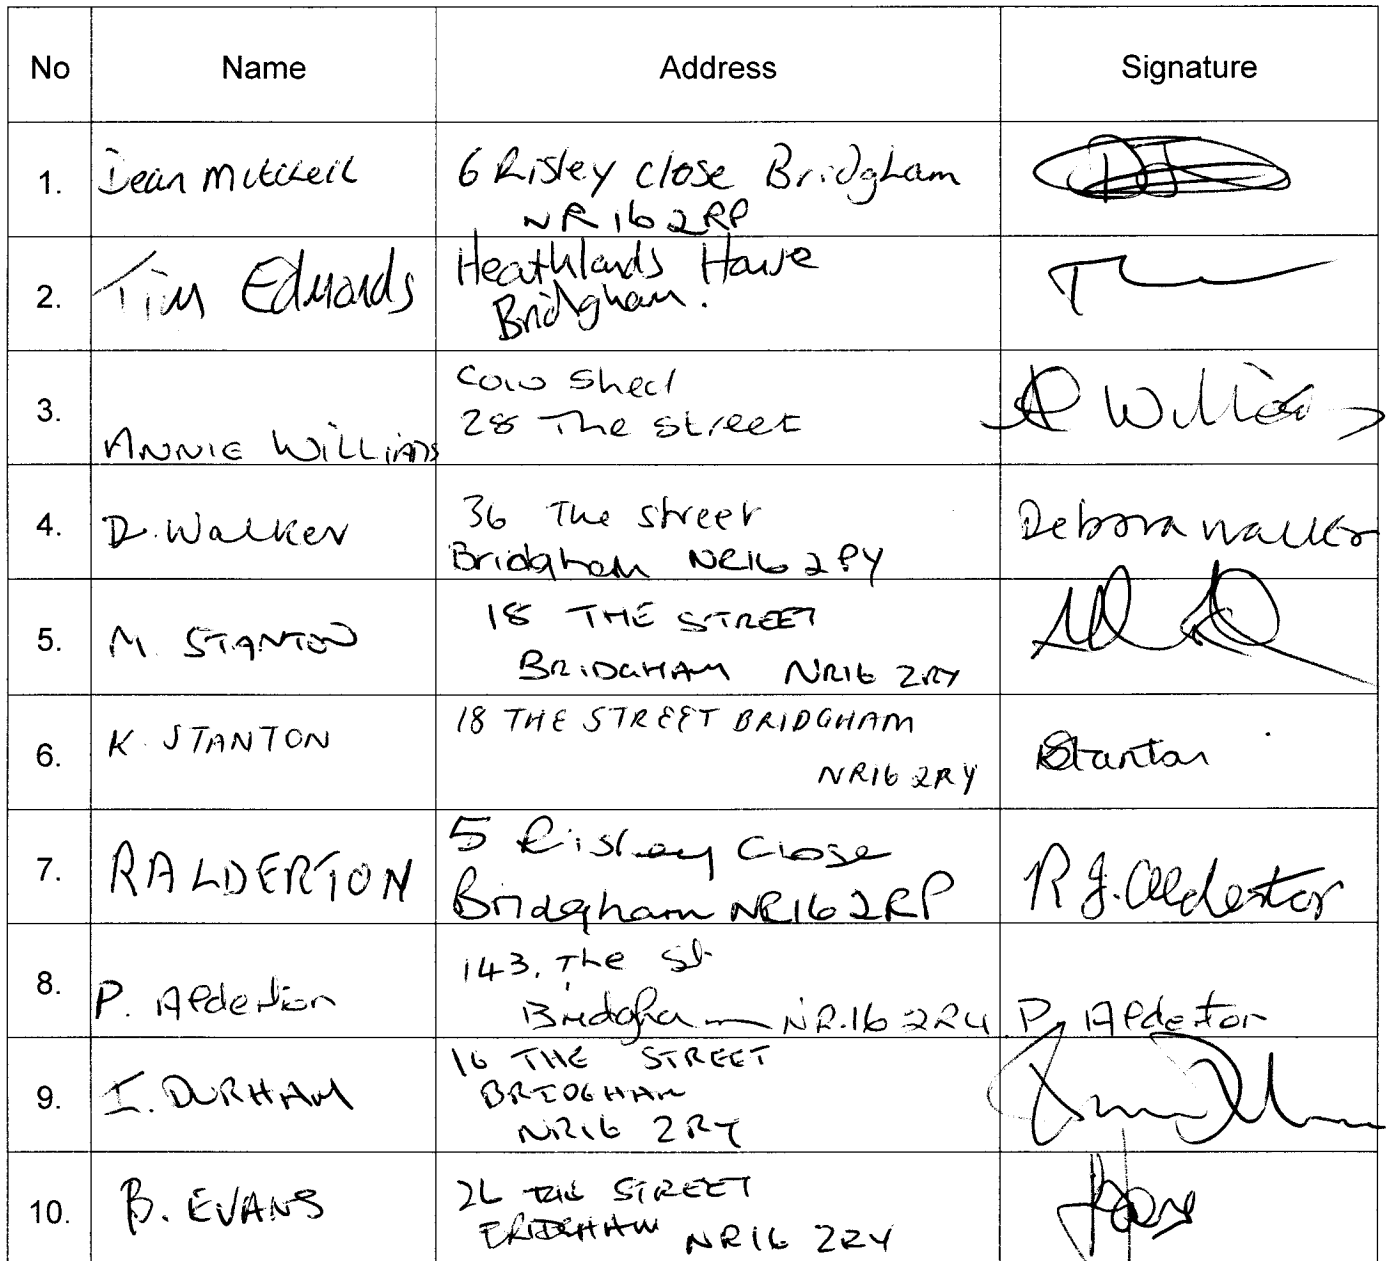 No Name Address Signature
1. Dean Mitchell 6 Risley close Bridgham
NR16 2RP
2. Tim Edwards Heathlands House
Bridgham.
3. ANNIE WILLIAMS Cow Shed
28 The Street A Williams
4. D. Walker 36 The street Debora Walker
Bridgham NR16 2PY
5. M. STANTON 18 THE STREET
BRIDGHAM NR16 2RY
6. K. STANTON 18 THE STREET BRIDGHAM Stanton
NR16 2RY
7. R ALDERTON 5 Risley Close R J. Alderton
Bridgham NR16 2RP
8. P. Alderton 143, The St
Bridgham NR.16 2RY P. Alderton
9. I. DURHAM 16 THE STREET
BRIDGHAM
NR16 2RY
10. B. EVANS 26 THE STREET
BRIDGHAM NR16 2RY